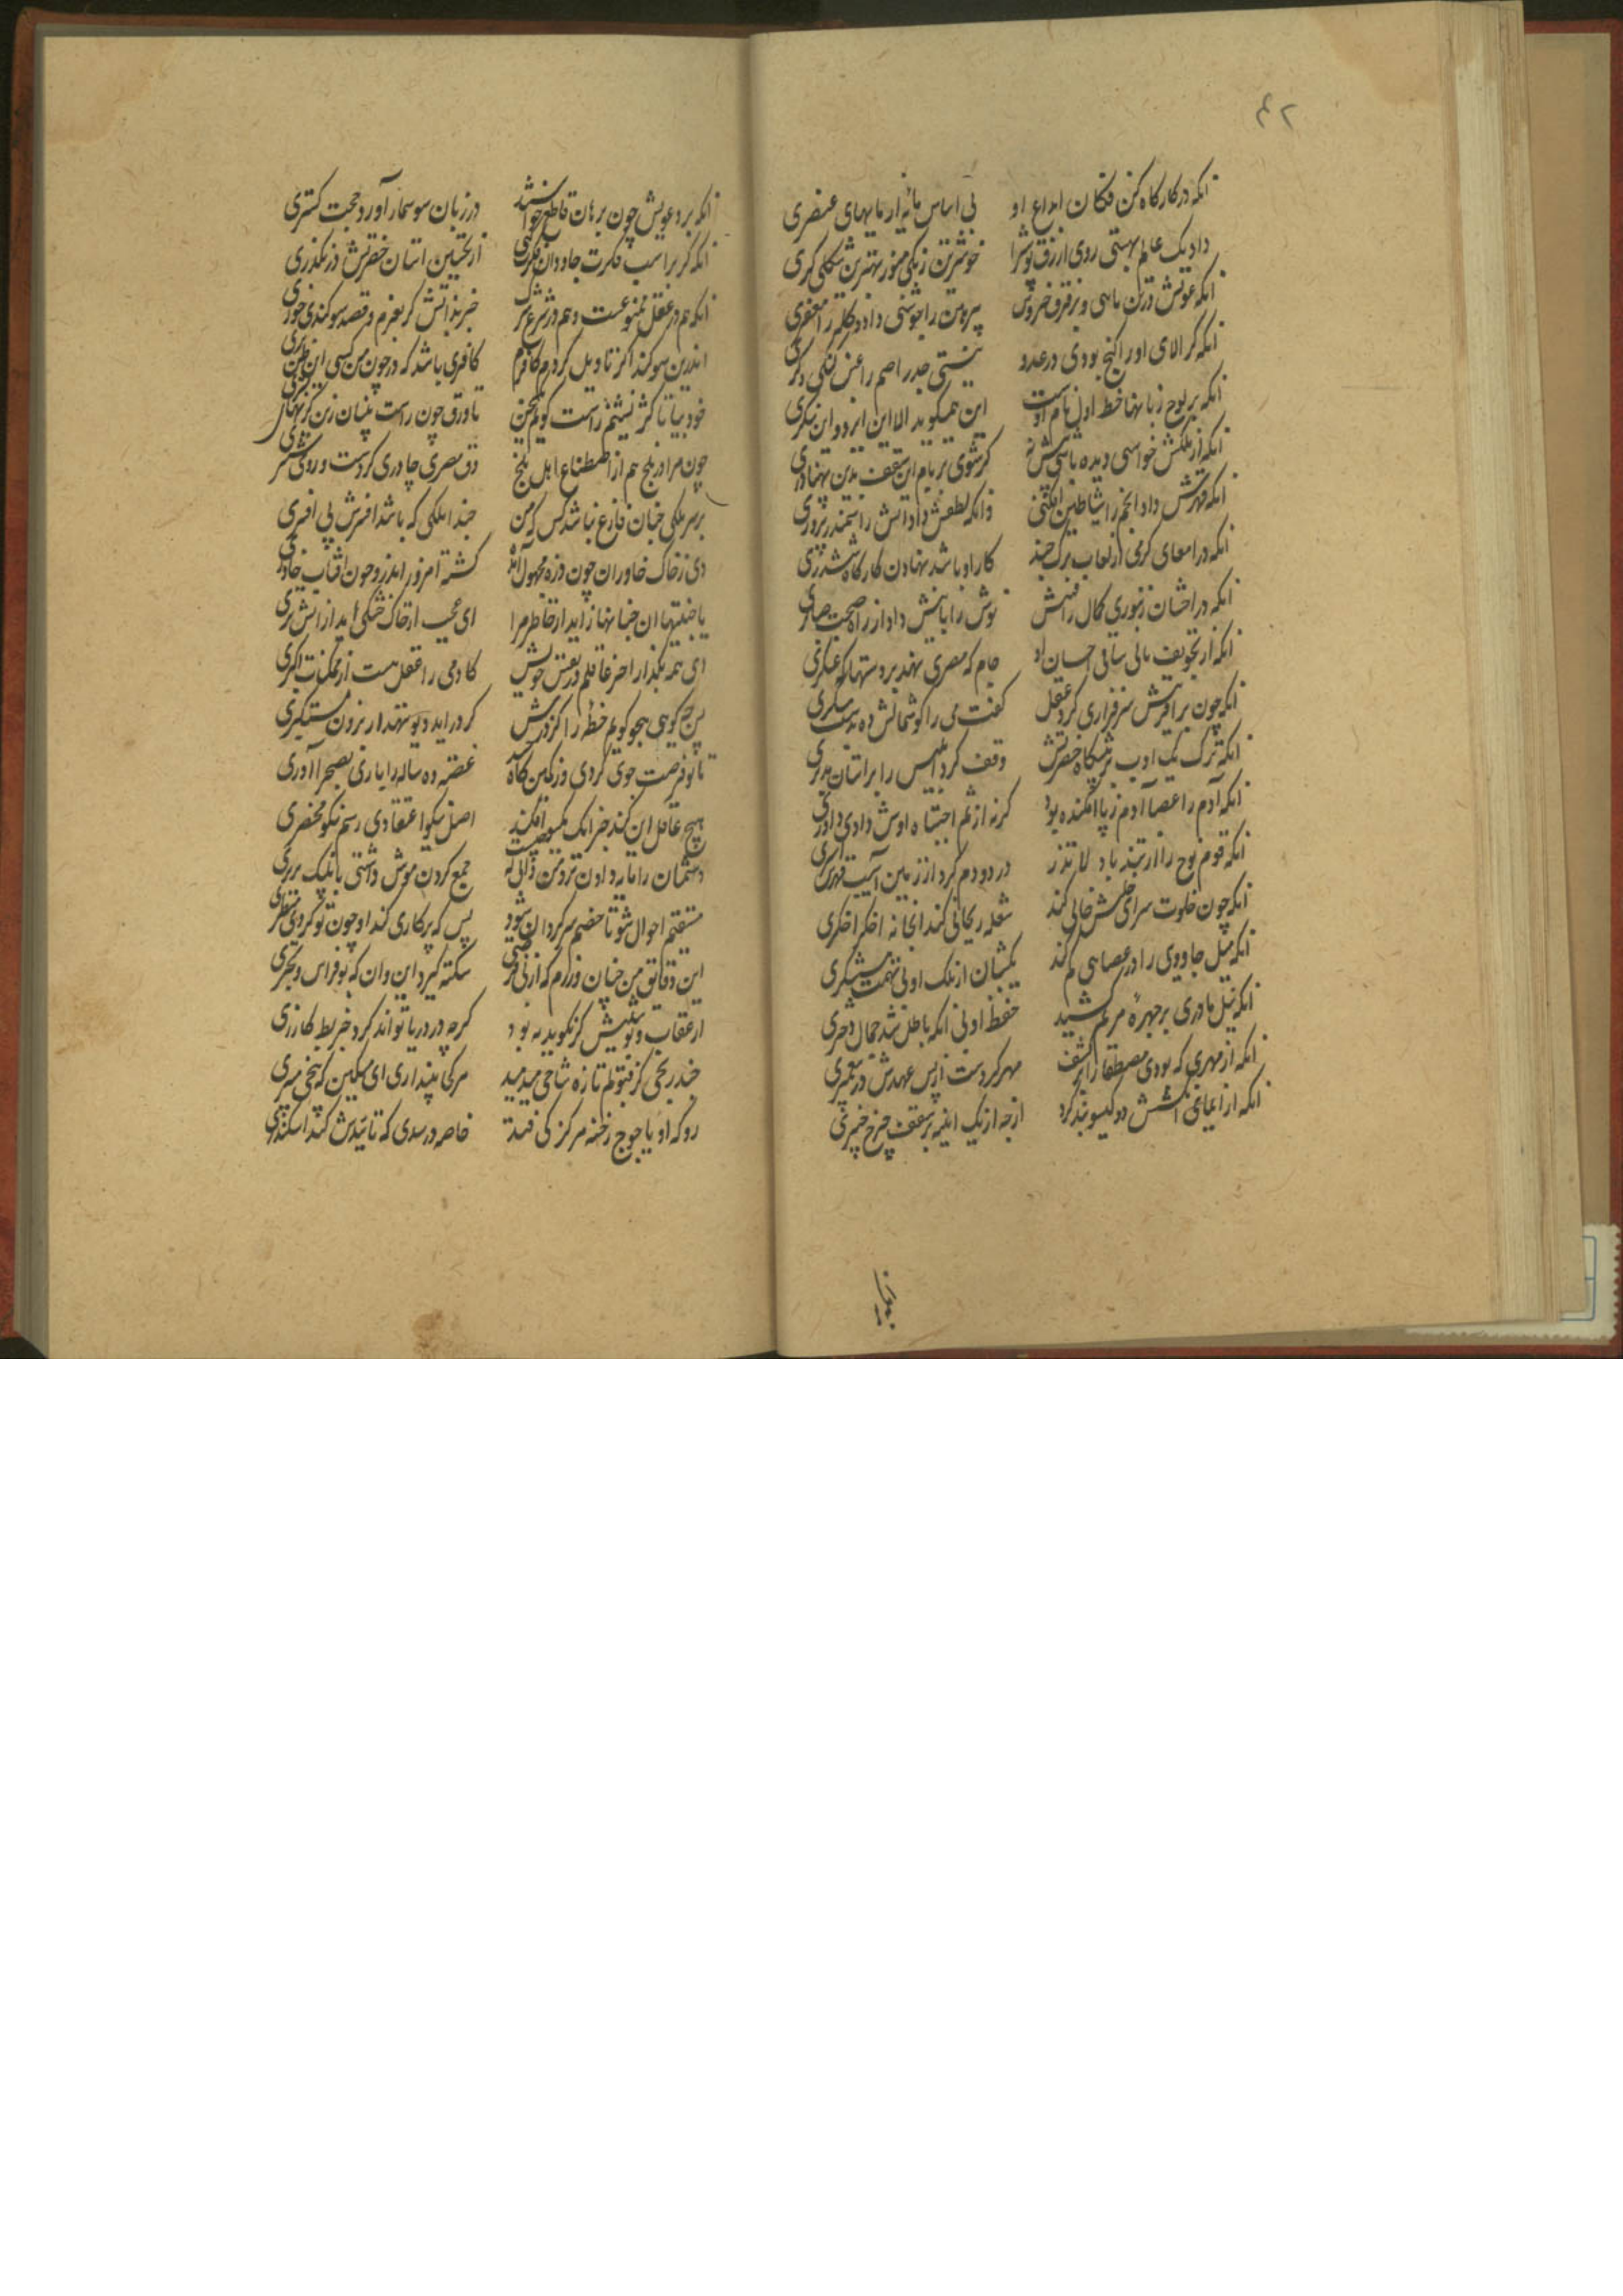 ۴۲
انکه در کارکاه کن فکان ابداع او بی اساس مایه از مایهای عنصری
داد یک عالم بهشتی روی ازرق پوش را خوشترین رنکی منور بهترین شکلی کری
انکه عونش در تن ماهی و بر فرق خروس پیرهن را جوشنی داد و کله را مغفری
انکه کر الای او را کنج بودی در عدد نیستی جدر اصم را غبن کنکی و کری
انکه بر لوح زبانها خط اول نام اوست این همیکوید الا این ایزد و این تنکری
انکه از ملکش خراسی دیده باشی پیش نه کر شوی بر بام این سقف بدین پهناوری
انکه قهرش داد انجم را شیاطین افکنی وانکه لطفش داد اتش را سمندر پروری
انکه در امعای کرمی از لعاب برک چند کار او باشد نهادن کارکاه ششتری
انکه در احشای زنبوری کمال رافتش نوش را با نیش داد از راه صحبت صابری
انکه از تجویف نالی ساقی احسان او جام که مصری نهد بر دستها که عسکری
انکه چون بر افرینش سرفرازی کرد عقل کفت می را کوشمالش ده بدست مسکری
انکه ترک یک ادب بر پیشکاه حضرتش وقف کرد ابلیس را بر استان مدبری
انکه آدم را عصا آدم ز پا افکنده بود کرنه از ثم اجتباه اوش دادی داوری
انکه قوم نوح را از تندباد لا تذر در دو دم کرد از زمین آسیب قهرش اسپری
انکه چون خلوت سرای خلتش خالی کند شعله ریحانی کند انجا نه اخکر اخکری
انکه میل جادویی را در عصایی کم کند یکشبان از ملک او نی تهمت مستنکری
انکه نیل مادری بر چهره مریم کشید حفظ او نی انکه باطل شد جمال دختری
انکه از مهری که بودی مصطفا را بر کتف مهر کردست از پس عهدش در پیغمبری
انکه از ایمای انکشتش دو کیسو بند کرد از چه از یک اینه بر سقف چرخ چنبری
انکه بر دعویش چون برهان قاطع خواستند در زبان سوسمار آورد حجت کستری
انکه کر بر اسب فکرت جاودان فکرت کنی از نخستین استان حضرتش در نکذری
انکه هم در عقل ممنوعست و هم در شرع شرک جز بذاتش کر بعزم و قصد سوکندی خوری
اندرین سوکند اکر تاویل کردم کافرم کافری باشد که در چون من کسی این ظن بری
خود بیا تا کژ نشینم راست کویم سخن تا ورق چون راست بینان زین کژیها
چون مرا در بلخ هم از اصطناع اهل بلخ دق مصری چادری کردست و رومی بستری
بر سر ملکی چنان فارغ نباشد کس که من حبذا ملکی که باشد افسرش بی افسری
دی ز خاک خاوران چون ذره مجهول آمده کشته امروز اندرو چون افتاب خاوری
با چنیها ان چنانها زاید از خاطر مرا ای عجب از خاک خشکی اید از اتش تری
این همه بکذار اخر عاقلم در نفس خویش کادمی را عقل هست از ممکنات اکثری
پس چه کویی هجو کویم خطه را کز درش کر دراید دیو بنهد از برون مستکبری
تا تو فرصت جوی کردی وز کمین کاه حسد غصه ده ساله را یا ری بصحرا آوری
هیچ عاقل این کند جز انک یکسو افکند اصل نیکو اعتقادی رسم نیکو محضری
دشمنان را مایه دادن نزد من دانی که چیست جمع کردن موش دشتی با پلنک بربری
مستقیم احوال شو تا خصم سرکردان شود پس که پرکاری کند او چون تو کردی مسطری
این دقایق من چنان ورزم که از بی فرصتی سکته کیرد این و ان که بوفراس و بحتری
از عقاب و پوستینش کر نکوید به بود کرچه در دریا تواند کرد خربط کازری
چند رنجی کز قبولم تازه شاخی میدمید مرکی پنداری ای مسکین که بیخی میبری
رو که او یاجوج رخنه هرکز کی فتد خاصه در سدی که تاییدش کند اسکندری